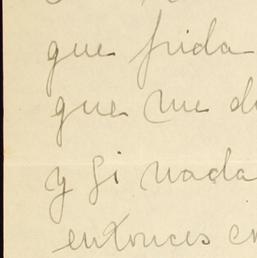 que frida
que me d
y si nada
entonces